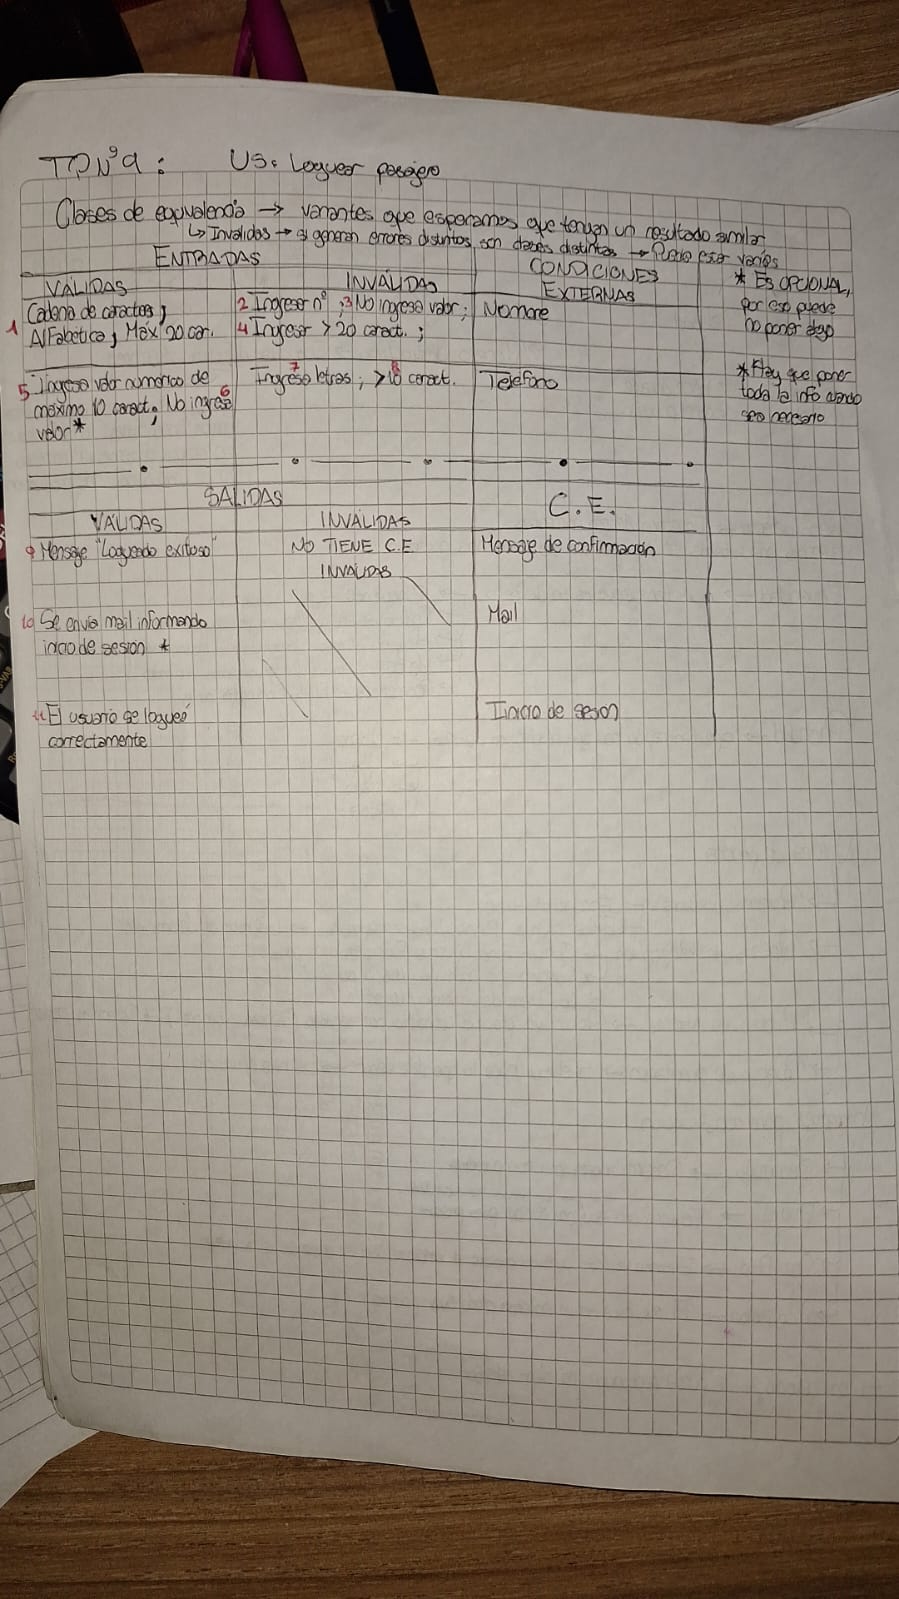 TP N°9: US: Loguear pasajero
Clases de equivalencia → variantes que esperamos que tengan un resultado similar
↳ Invalidas → si generan errores distintos, son clases distintas → Puede haber varios
ENTRADAS
CONDICIONES EXTERNAS
VÁLIDAS
INVÁLIDAS
* Es OPCIONAL,
por eso puede
no poner algo
1 Cadena de caracteres,
Alfabética, Máx 20 car.
2 Ingresar n°; 3 No ingresa valor;
4 Ingresar > 20 caract.;
Nombre
5 Ingresa valor numérico de
máximo 10 caract. 6 No ingresa
valor*
7 Ingreso letras; 8 > 10 caract.
Teléfono
* Hay que poner
toda la info cuando
sea necesario
SALIDAS
VÁLIDAS
INVÁLIDAS
C.E.
9 Mensaje "Logueado exitoso"
NO TIENE C.E
INVALIDAS
Mensaje de confirmación
10 Se envía mail informando
inicio de sesión *
Mail
11 El usuario se logueó
correctamente
Inicio de sesión